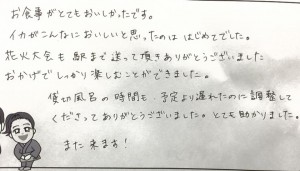 お食事がとてもおいしかったです。
イカがこんなにおいしいと思ったのは はじめてでした。
花火大会も 駅まで送って頂きありがとうございました
おかげで しっかり楽しむことができました。
貸切風呂の時間も、予定より遅れたのに調整して
くださって ありがとうございました。とても助かりました。
また来ます!